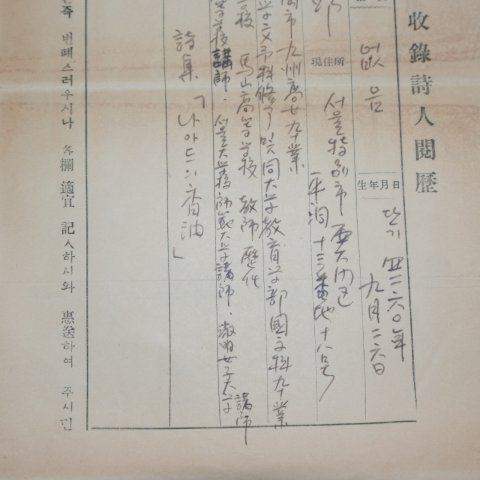 收錄詩人閱歷
없음
生年月日
단기 四二六○年
九月二六日
現住所
서울特別市
洞 十三番地 十八号
市 九州高女 卒業
文 予科修了 及 同大学 敎育学部 國文科 卒業
馬山高等学校 敎師 歷任
等学校 講師. 서울大学校 師範大学 講師. 淑明女子大学
講師
詩集「나아드의 香油」
족 번폐스러우시나 各欄 適宜 記入하시와 惠送하여 주시면